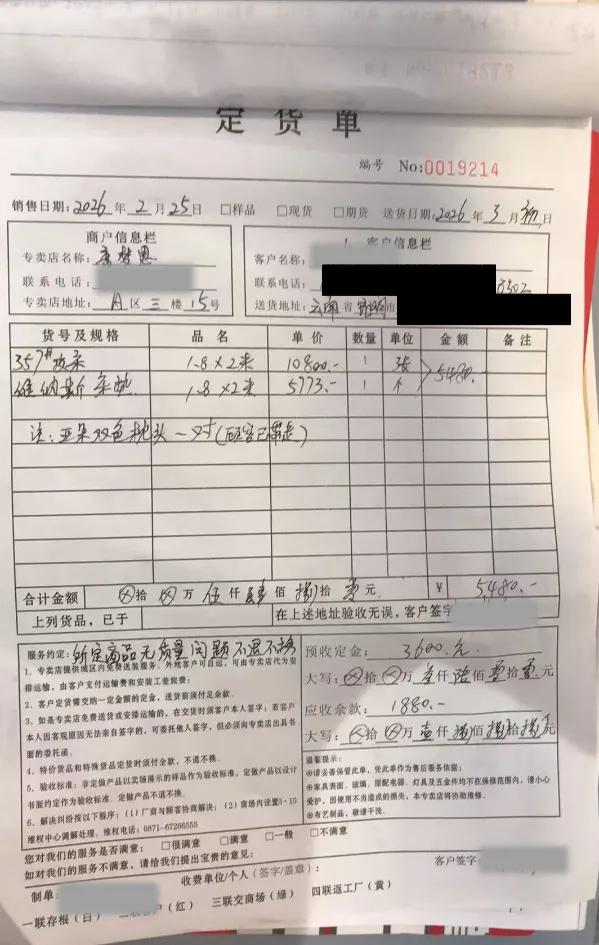 定货单
编号 No:0019214
销售日期:2026年2月25日 □样品 □现货 □期货 送货日期:2026年3月初日
商户信息栏
专卖店名称:
联系电话:
专卖店地址:A区三楼15号
客户信息栏
客户名称:
联系电话: 3502
送货地址:云南省昭通市
货号及规格 品名 单价 数量 单位 金额 备注
357# 1.8×2米 10800.- 1 张 5480.-
维纳斯床垫 1.8×2米 5773.- 1 个
注:亚朵双色枕头一对(顾客已带走)
合计金额 ⊗拾⊗万伍仟肆佰捌拾零元 ¥ 5480.-
上列货品,已于 在上述地址验收无误,客户签字
服务约定:所定商品无质量问题不退不换
1、专卖店提供城区内免费送装服务。外地客户可自运,可由专卖店代为安
排运输,由客户支付运输费和安装工差旅费;
2、客户定货需交纳一定金额的定金,送货前须付足余款。
3、如是专卖店免费送货或安排运输的,在交货时须客户本人签字;若客户
本人因客观原因无法亲自签字的,可委托他人签字,但必须向专卖店出具书
面的委托函。
4、特价货品和特殊货品定货时须付全款,不退不换。
5、验收标准:非定做产品以卖场展示的样品作为验收标准,定做产品以设计
书面约定作为验收标准。定做产品不退换。
6、解决纠纷按以下顺序:(1)厂商与顾客协商解决;(2)商场内设置3·15
维权中心调解处理。维权电话:0871-67266555
预收定金:3600.元
大写:⊗拾⊗万叁仟陆佰零拾零元
应收余款:1880.-
大写:⊗拾⊗万壹仟捌佰捌拾零元
温馨提示:
◎请妥善保管此单,凭此单作为售后服务依据;
◎家具表面、玻璃、搭配电器、灯具及五金件均不在保修范围内,请小心
爱护,因使用不当造成的损失,本专卖店将协助维修。
◎布艺制品,敬请干洗。
您对我们的服务是否满意: □很满意 □满意 □一般 □不满意
如对我们的服务不满意,请给我们提出宝贵的意见:
制单: 收费单位/个人(签字/盖章): 客户签字:
一联存根(白) 二联客户(红) 三联交商场(绿) 四联返工厂(黄)